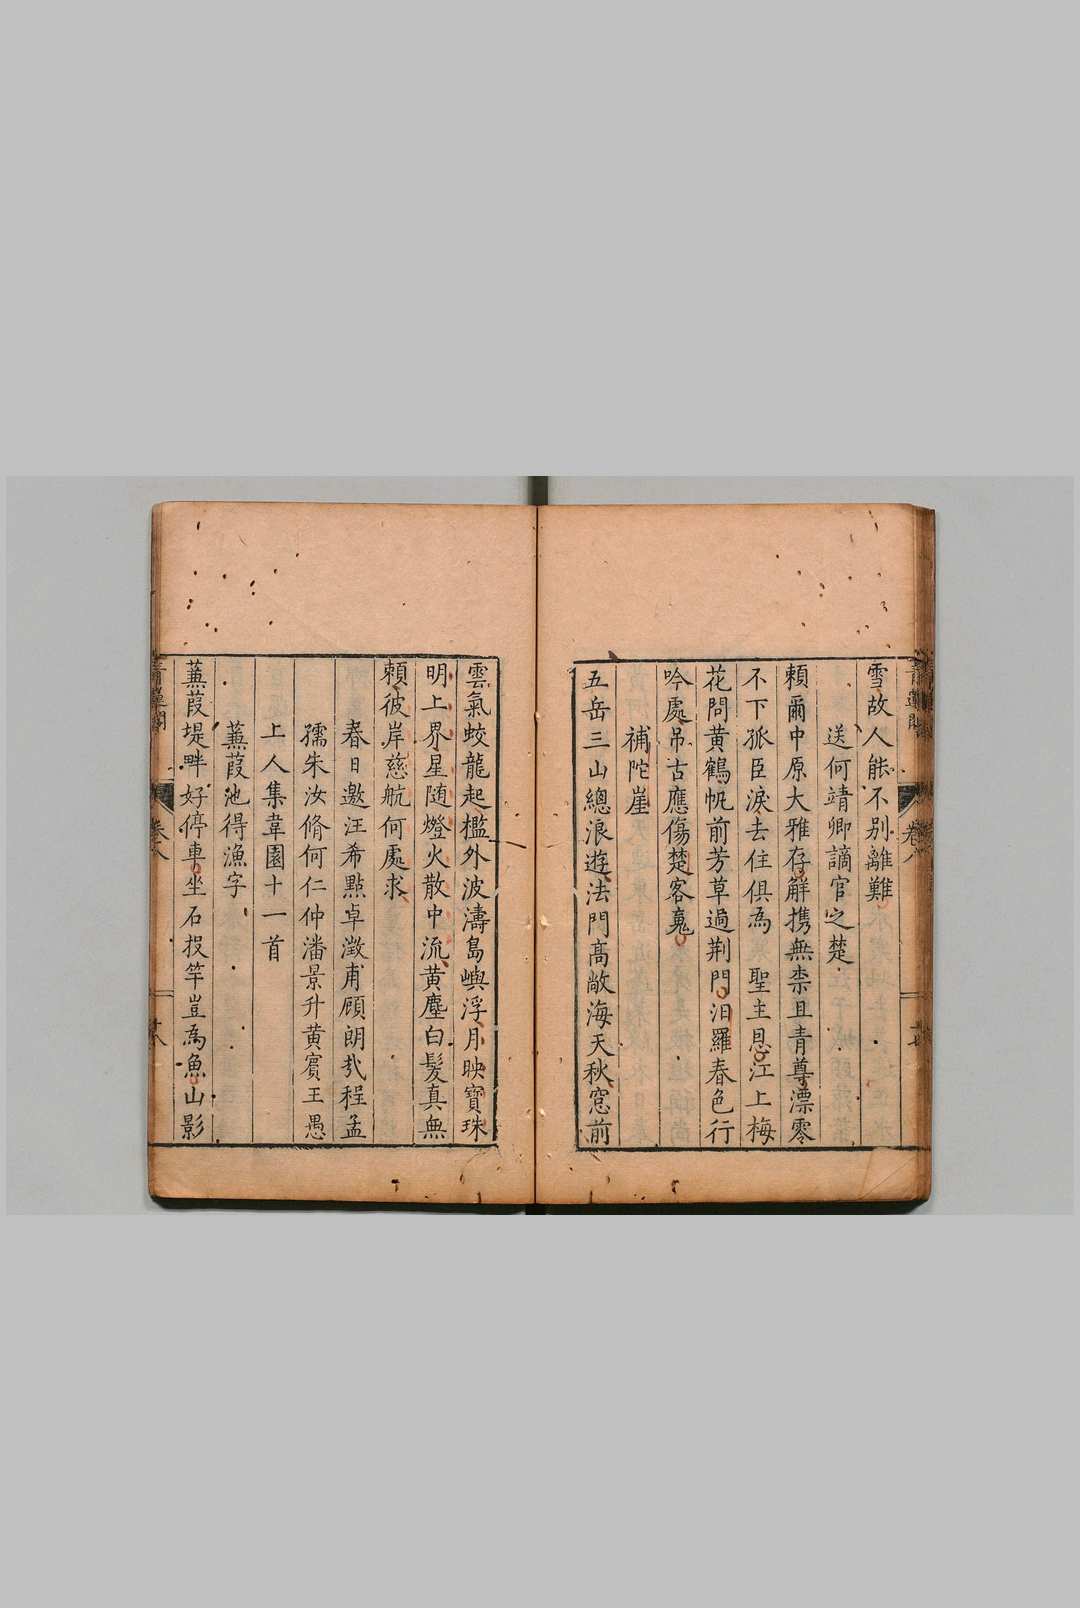 雪故人能不别離難
送何靖卿謫官之楚
頼爾中原大雅存觧携無柰且青尊漂零
不下孤臣淚去住俱為聖主恩江上梅
花問黄鶴帆前芳草過荆門汨羅春色行
吟處吊古應傷楚客䰟
補陀崖
五岳三山總浪遊法門髙敞海天秋窓前
雲氣蛟龍起檻外波濤島嶼浮月映寶珠
明上界星随燈火散中流黄塵白髪真無
頼彼岸慈航何處求
春日邀汪希㸃卓澂甫顧朗㢤程孟
孺朱汝脩何仁仲潘景升黄賔王愚
上人集葦園十一首
蒹葭池得漁字
蒹葭堤畔好停車坐石投竿豈為魚山影
卷八
十八